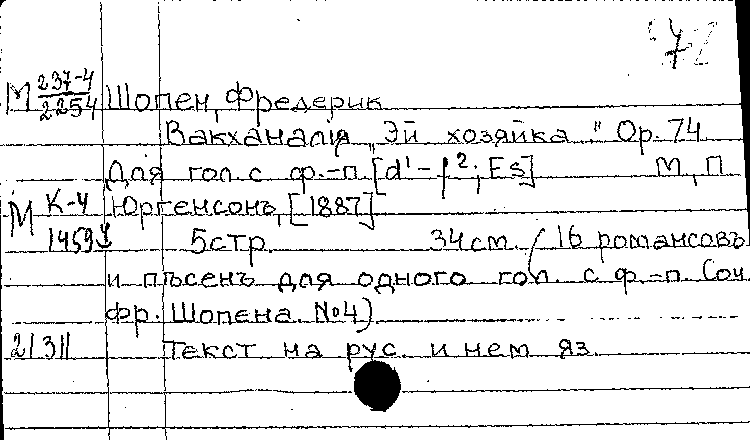 72
М 237-4/2254 Шопен, Фредерик
Вакханалия „Эй хозяйка." Op. 74
Для гол. с ф.-п. [d¹-f²; Es] М, П
М К-4/1459 Юргенсонъ, [1887]
5стр. 34см. (16 романсовъ
и пѣсенъ для одного гол. с ф.-п. Соч.
Фр. Шопена. №4)
21311 Текст на рус. и нем яз.